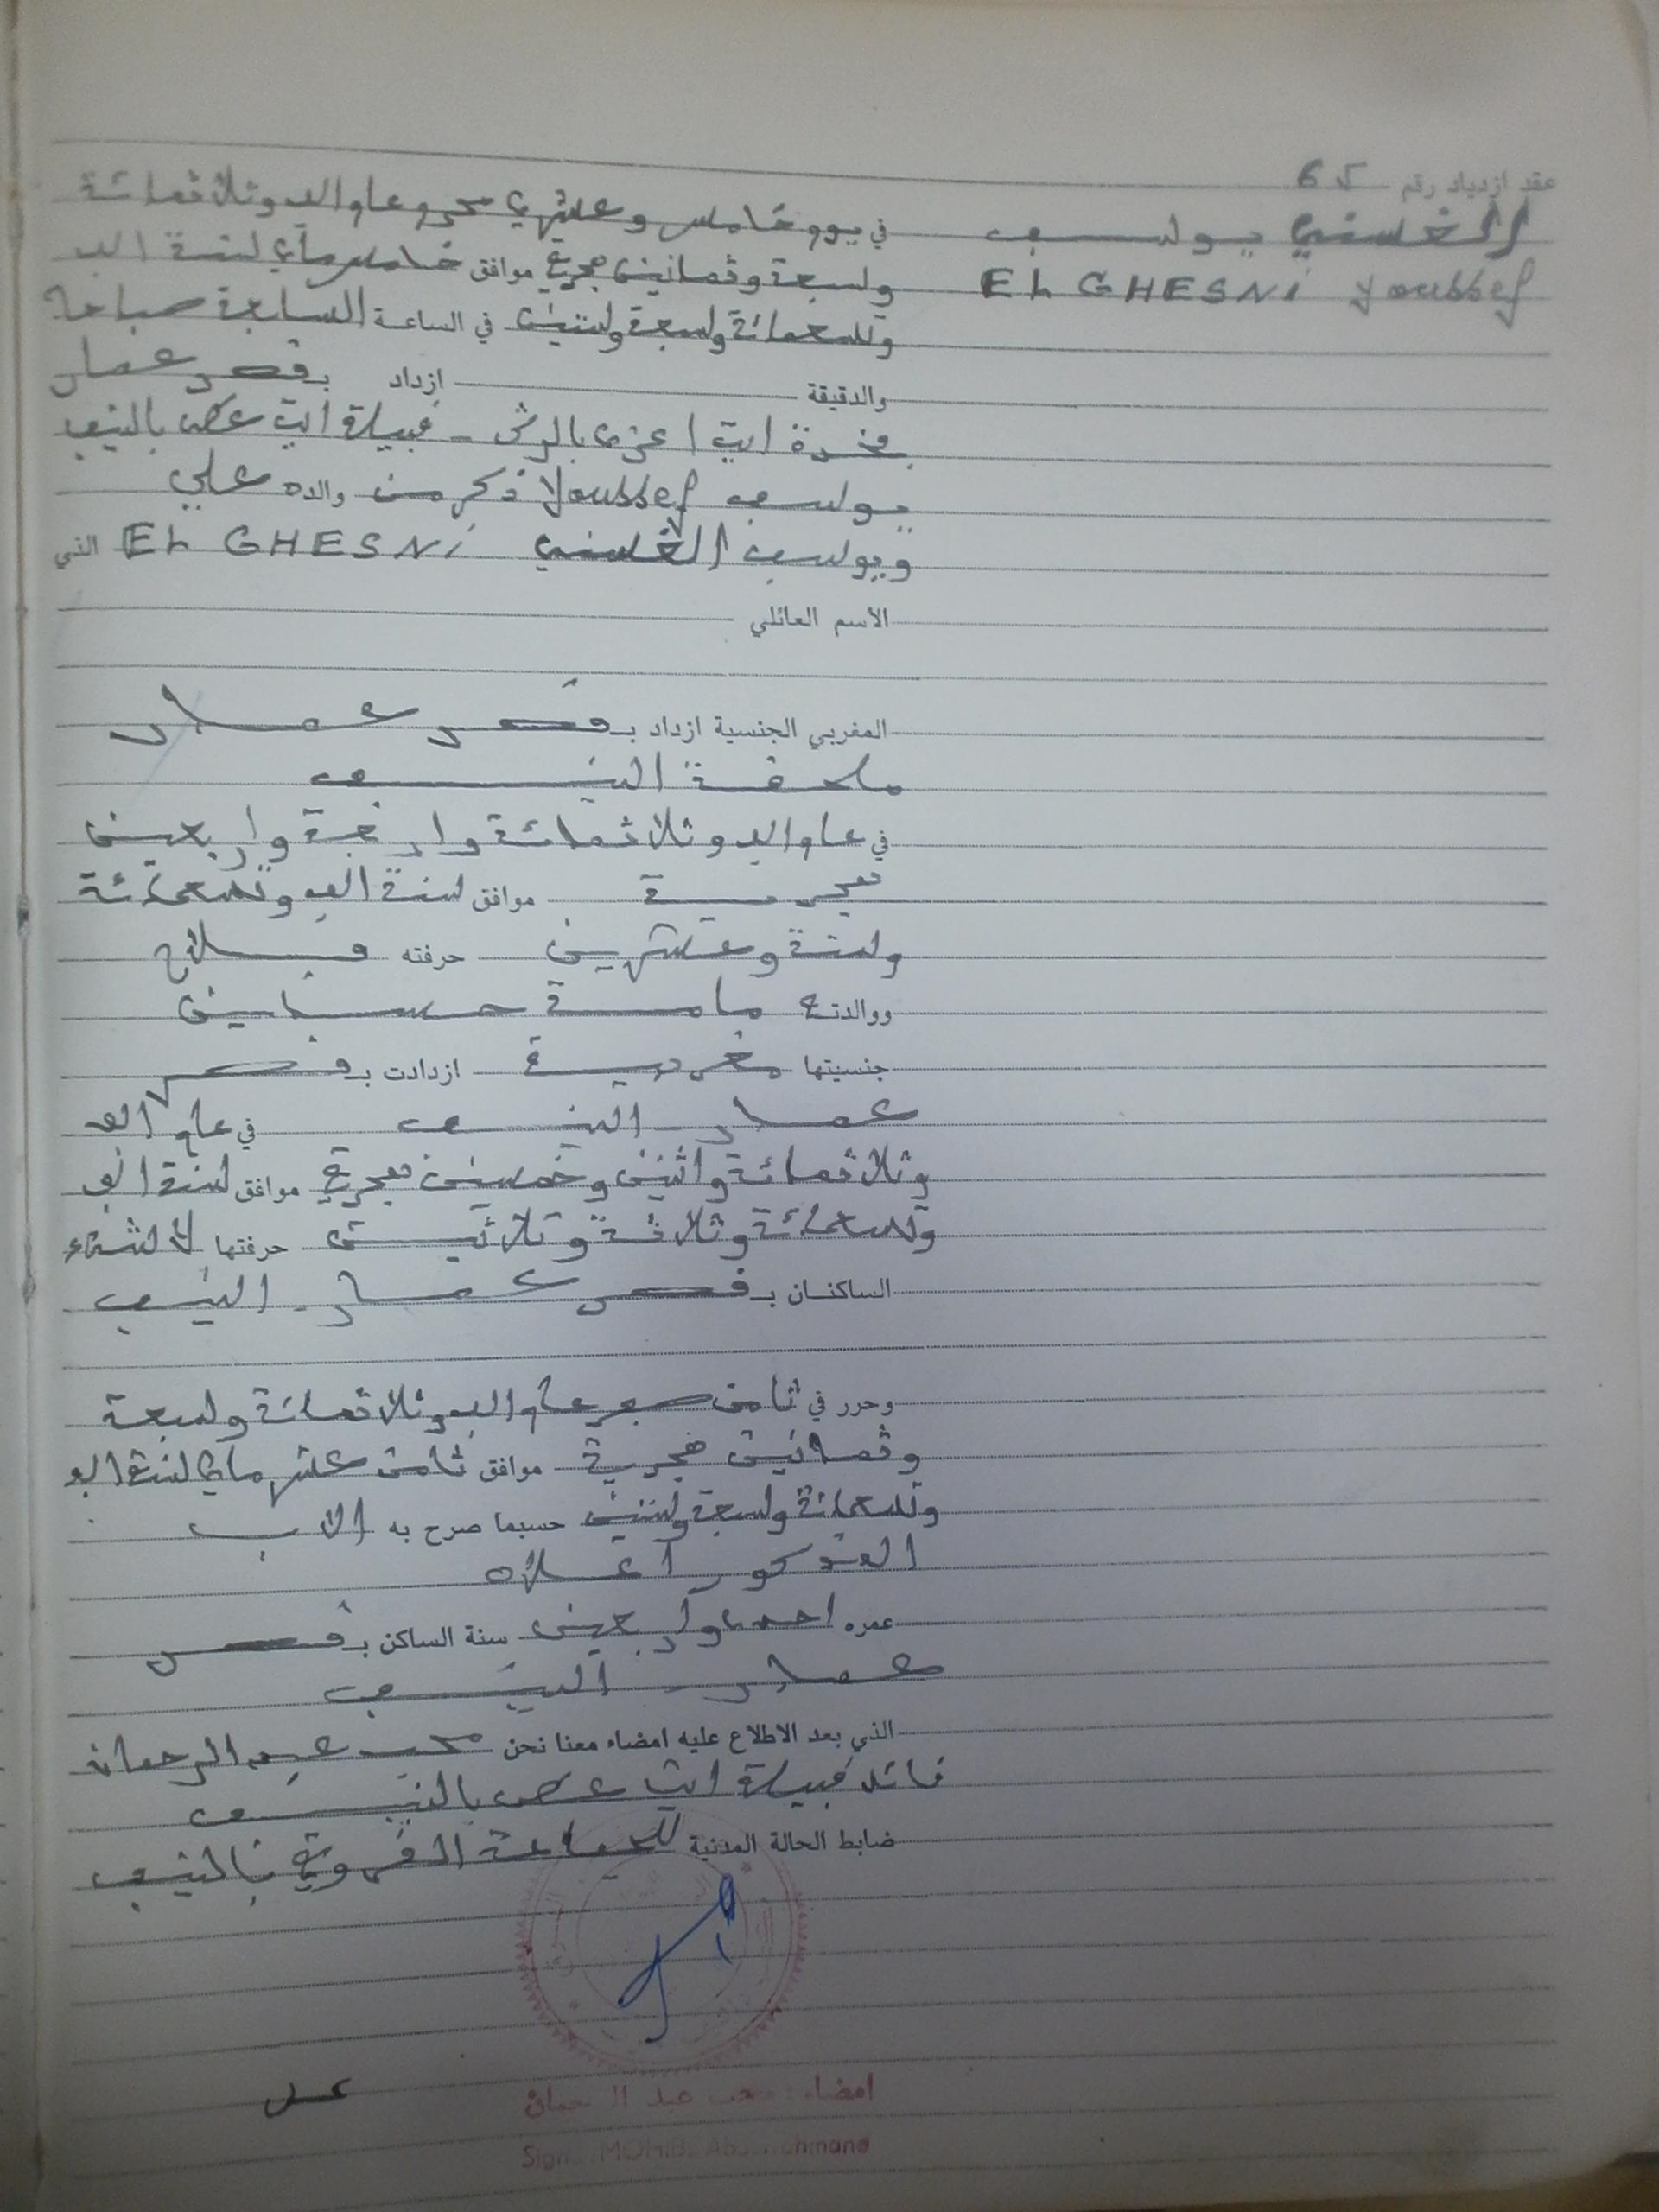 عقد ازدياد رقم
الغسني يوسف
EL GHESNi Youssef
في يوم خامس وعشري محرم عام الف وثلاثمائة
وسبعة وثمانين هجرية موافق خامس ماي لسنة الف
وتسعمائة وسبعة وستين في الساعة السابعة صباحا
والدقيقة ازداد بقصر عمار
قبيلة ايت عطى بالنيف
يوسف Youssef ذكر من والده علي
ويوسف الغسني EL GHESNi الذي
الاسم العائلي
المغربي الجنسية ازداد بـ قصر عمار
ملحقة النيف
في عام الف وثلاثمائة واربعة واربعين
هجرية موافق لسنة الف وتسعمائة
وستة وعشرين حرفته فلاح
ووالدته
جنسيتها مغربية ازدادت بـ قصر
عمار النيف في عام الف
وثلاثمائة واثنين وخمسين هجرية موافق لسنة الف
وتسعمائة وثلاثة وثلاثين حرفتها لا شيء
الساكنان بـ قصر عمار النيف
وحرر في ثامن صفر عام الف وثلاثمائة وسبعة
وثمانين هجرية موافق ثامن عشر ماي لسنة الف
وتسعمائة وسبعة وستين حسبما صرح به الاب
المذكور اعلاه
عمره احدى واربعين سنة الساكن بـ قصر
عمار النيف
الذي بعد الاطلاع عليه امضاء معنا نحن محب عبد الرحمان
قائد قبيلة ايت عطى بالنيف
ضابط الحالة المدنية للجماعة القروية بالنيف
امضاء : محب عبد الرحمان
Signé MOHIB Abderrahmane